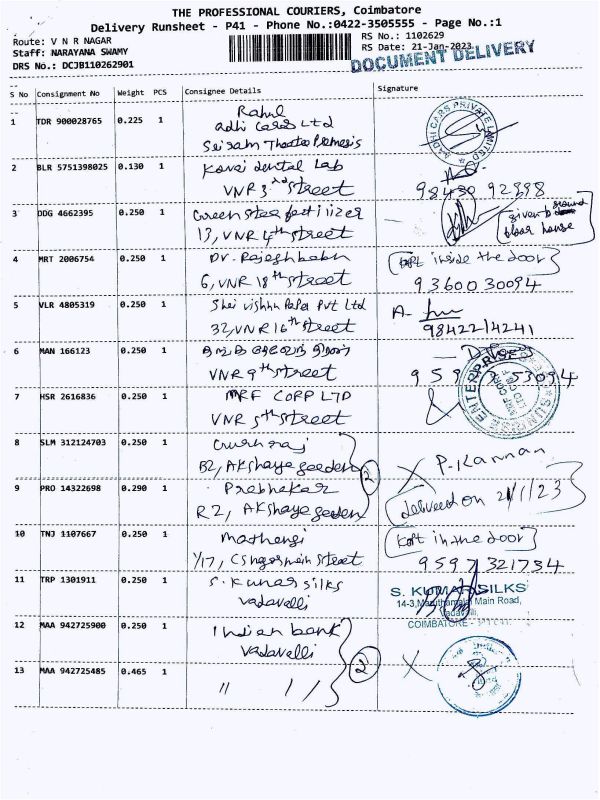 THE PROFESSIONAL COURIERS, Coimbatore
Delivery Runsheet - P41 - Phone No.:0422-3505555 - Page No.:1
Route: V N R NAGAR
RS No.: 1102629
Staff: NARAYANA SWAMY
RS Date: 21-Jan-2023
DRS No.: DCJB110262901
DOCUMENT DELIVERY
S No Consignment No Weight PCS Consignee Details Signature
1 TDR 900028765 0.225 1 Rahul
Adhi Cars Ltd
Sriram Theatre
ADHI CARS PRIVATE LIMITED
2 BLR 5751398025 0.130 1 Kovai dental Lab
VNR 3rd street
98430 92898
3 DDG 4662395 0.250 1 Green
13, VNR 4th street
given to ground
floor house
4 MRT 2006754 0.250 1 Dr. Rajeshbabu
6, VNR 18th street
inside the door
9360030094
5 VLR 4805319 0.250 1 Shri Vishnu Pvt Ltd
32, VNR 16th street
9842214241
6 MAN 166123 0.250 1
VNR 9th street
7 HSR 2616836 0.250 1 MRF CORP LTD
VNR 5th street
ENTERPRISES
MRF CORP
8 SLM 312124703 0.250 1
B2, Akshaya
P. Kannan
9 PRO 14322698 0.290 1 Prabhakar
R2, Akshaya
2
delivered on 21/1/23
10 TNJ 1107667 0.250 1 Mathangi
1/17, street
Kept in the door
9597321734
11 TRP 1301911 0.250 1 S. Kumar silks
Vadavalli
S. KUMAR SILKS
14-3, Main Road,
Vadavalli,
COIMBATORE -
12 MAA 942725900 0.250 1 Indian bank
Vadavalli
13 MAA 942725485 0.465 1 " "
2